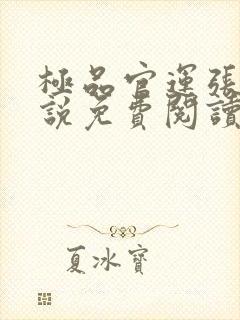 極品官運張
說免費閱讀
夏冰寶